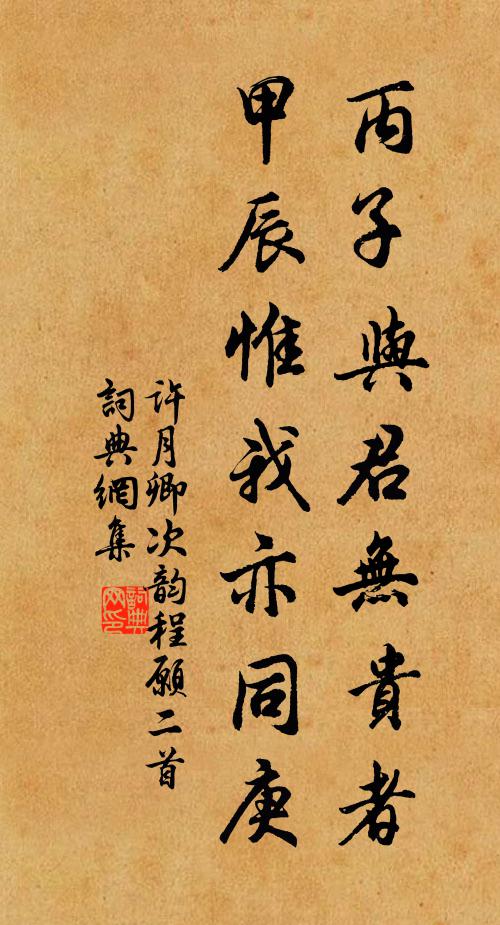 丙子與君無貴者
甲辰惟我亦同庚
許月卿次韵程願二首
詞典網集
詞典網印